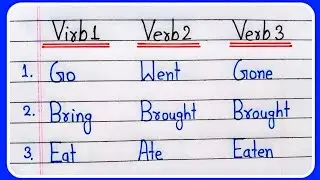 Virb1 Verb2 Verb3
1. Go Went Gone
2. Bring Brought Brought
3. Eat Ate Eaten